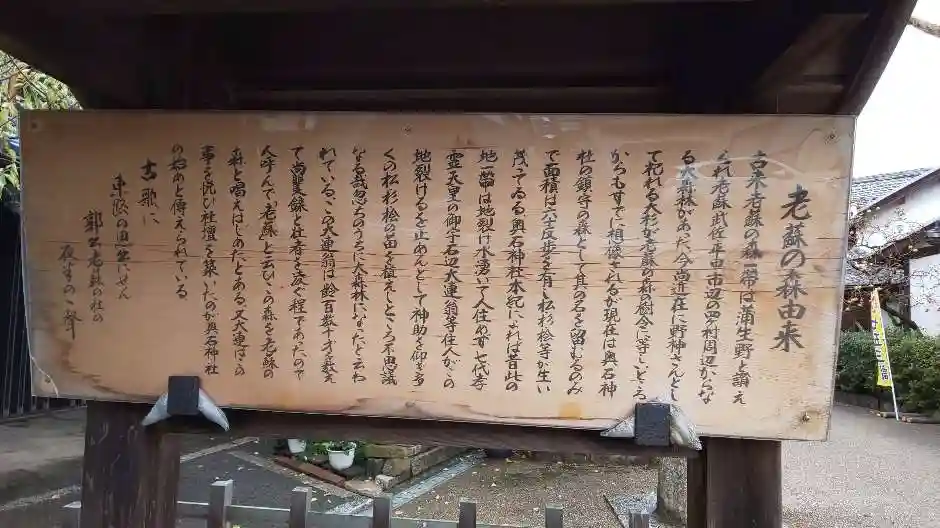 老蘇の森由来
古来老蘇の森一帯は蒲生野と讃え
られ老蘇武佐平田市辺の四村周辺からな
る大森林があった今尚近在に野神さんとし
て祀れる大杉が老蘇の森の樹令に等しいところ
からもすでに想像されるが現在は奥石神
社の鎮守の森として其の名を留むるのみ
で面積は六十反歩を有し松杉桧等が生い
茂っている奥石神社本紀によれば昔此の
地一帯は地裂け水湧いて人住めず七代孝
霊天皇の御宇石辺大連翁等住人がこの
地裂けるを止めんとして神助を仰ぎ多
くの松杉桧の苗を植えしところ不思議
なる哉忽ちのうちに大森林になったと云わ
れているこの大連翁は齢百数十才を数え
て尚矍鑠と壮者を凌ぐ程であったので
人呼んで老蘇と云いこの森を老蘇の
森と唱えはじめたとある又大連はこの
事を悦び社壇を築いたのが奥石神社
の始めと傳えられている
古歌に
東路の思出にせん
郭公老蘇の杜の
夜半の一聲